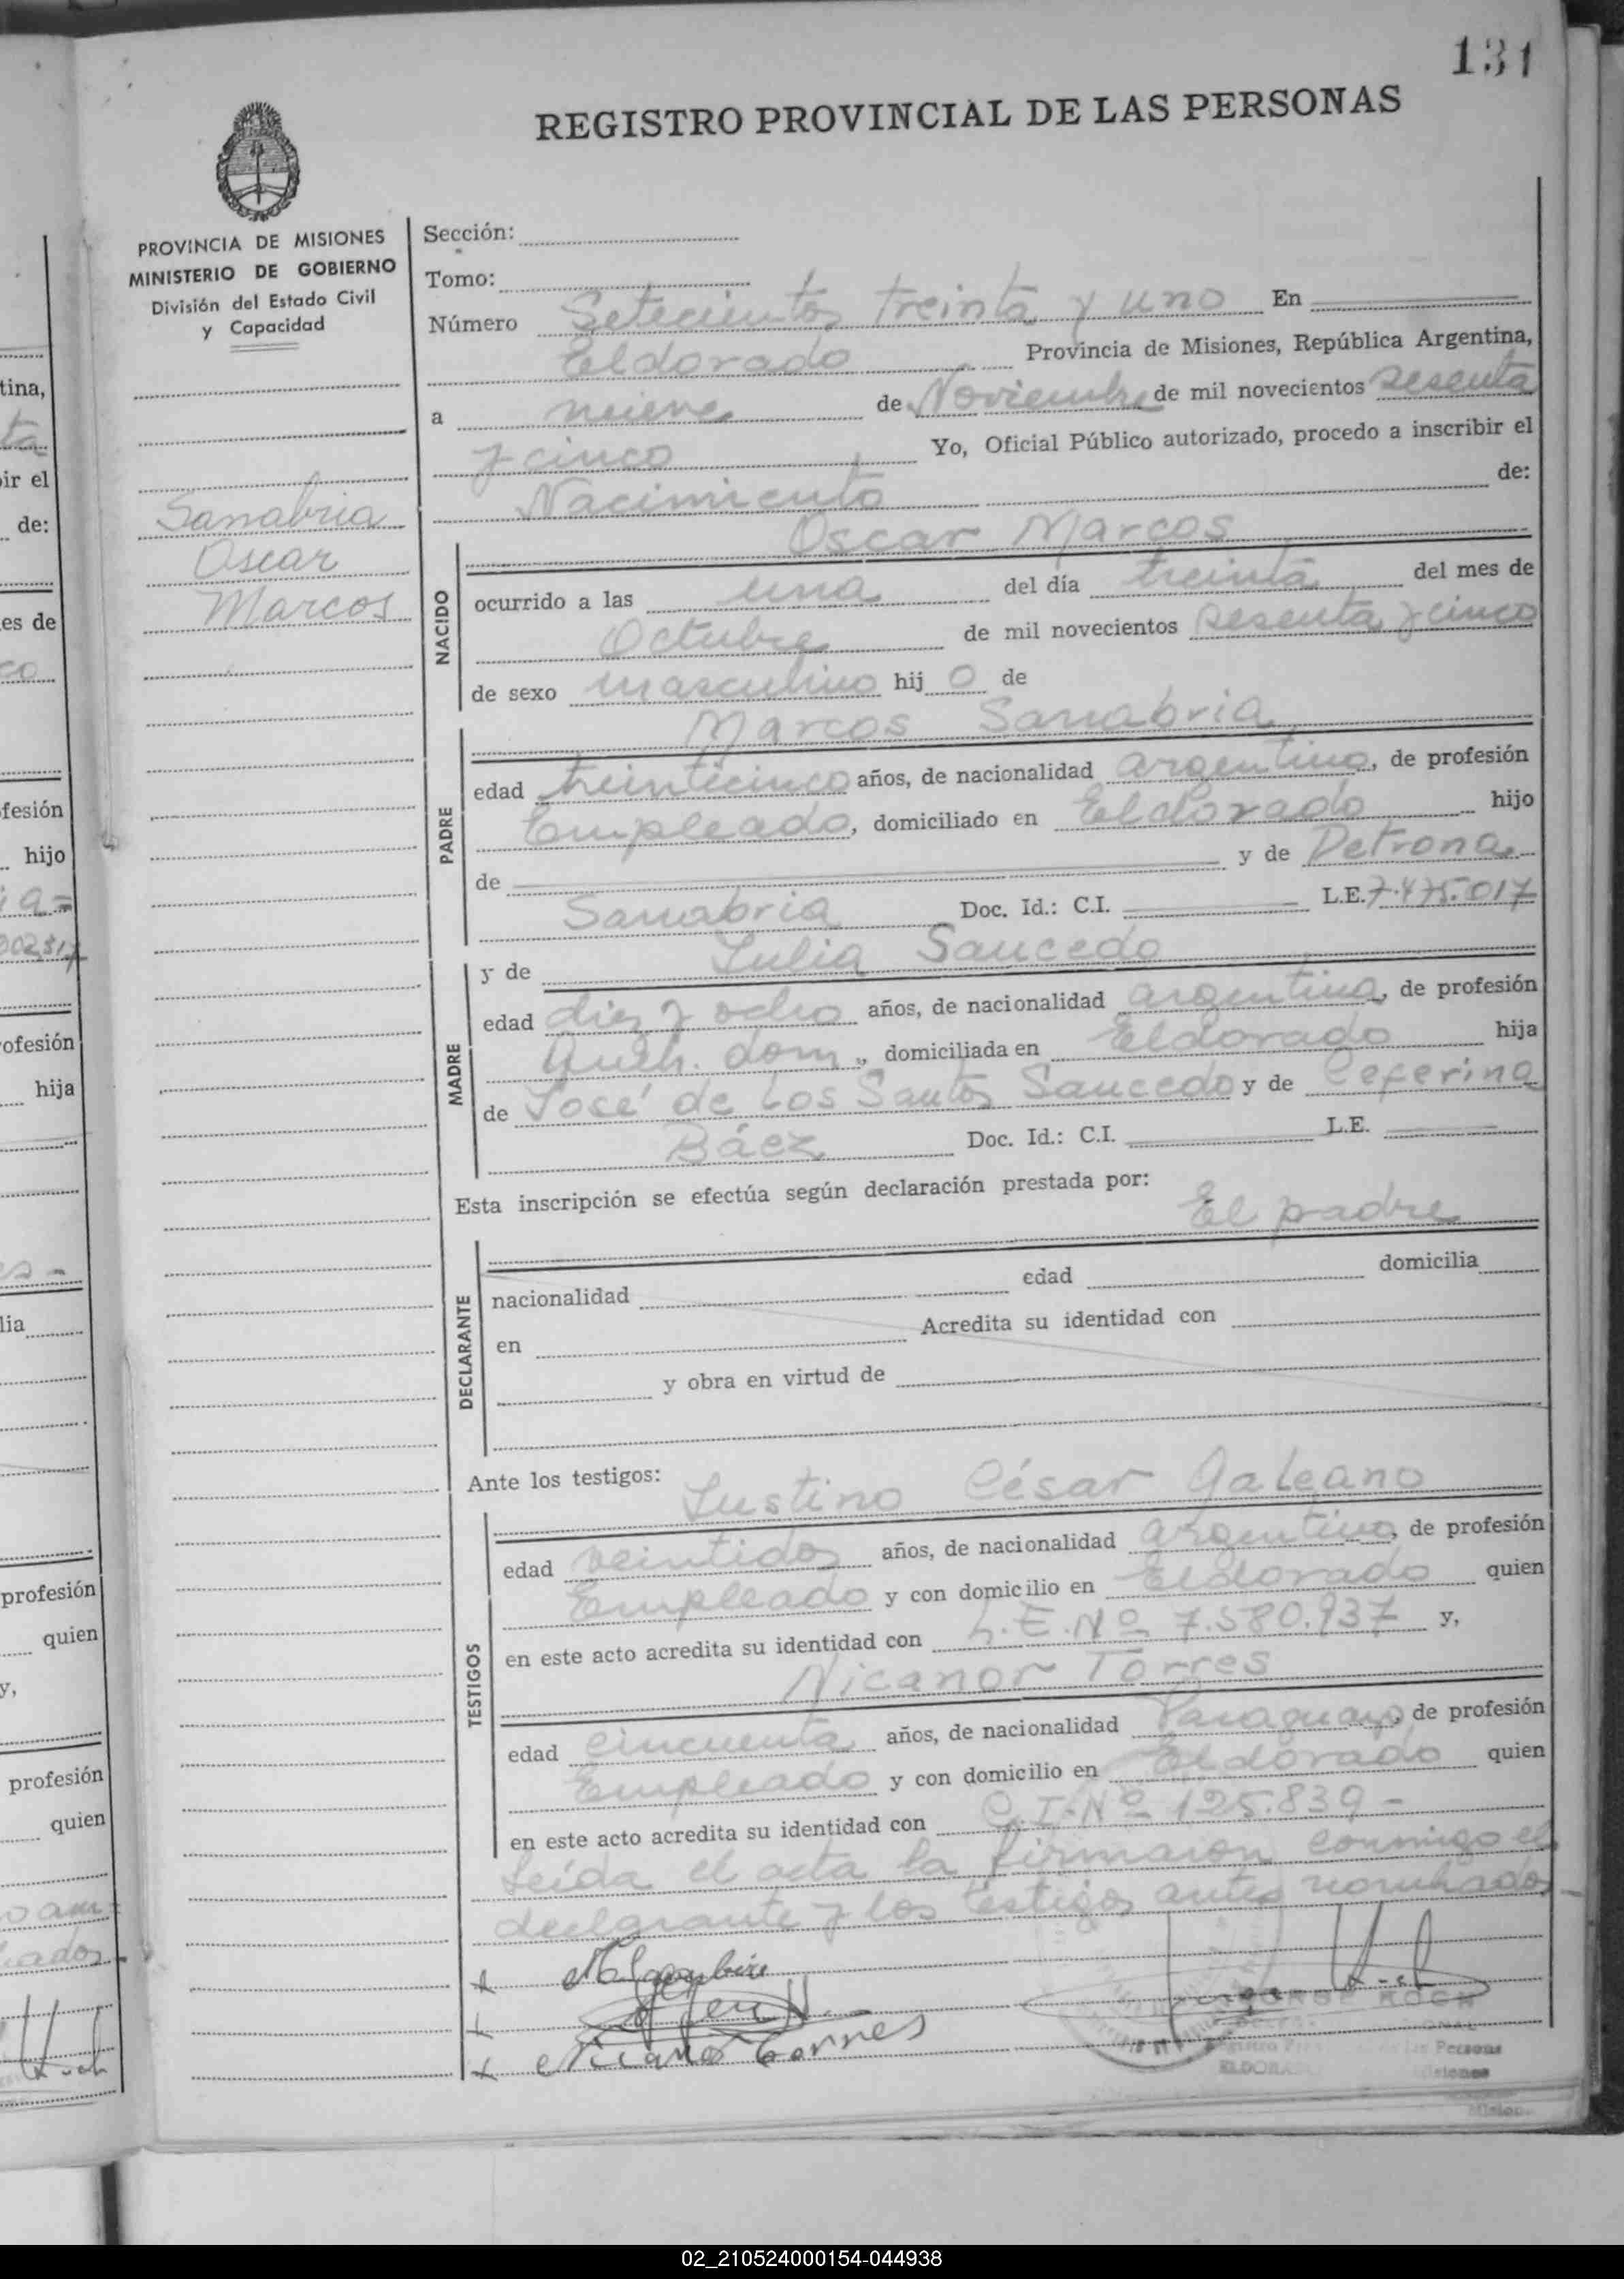 131
REGISTRO PROVINCIAL DE LAS PERSONAS
PROVINCIA DE MISIONES
MINISTERIO DE GOBIERNO
División del Estado Civil
y Capacidad
Sanabria
Oscar
Marcos
Sección:
Tomo:
Número Setecientos treinta y uno En
Eldorado Provincia de Misiones, República Argentina,
a nueve de Noviembre de mil novecientos sesenta
y cinco Yo, Oficial Público autorizado, procedo a inscribir el
Nacimiento de:
Oscar Marcos
NACIDO
ocurrido a las una del día treinta del mes de
Octubre de mil novecientos sesenta y cinco
de sexo masculino hij o de
Marcos Sanabria
PADRE
edad treinticinco años, de nacionalidad argentino, de profesión
Empleado, domiciliado en Eldorado hijo
de y de Petrona
Sanabria Doc. Id.: C.I. L.E. 7.475.017
MADRE
y de Julia Saucedo
edad diez y ocho años, de nacionalidad argentina, de profesión
Queh. dom., domiciliada en Eldorado hija
de José de los Santos Saucedo y de Ceferina
Báez Doc. Id.: C.I. L.E.
Esta inscripción se efectúa según declaración prestada por:
El padre
DECLARANTE
nacionalidad edad domicilia
en Acredita su identidad con
y obra en virtud de
Ante los testigos:
Justino César Galeano
TESTIGOS
edad veintidos años, de nacionalidad argentino, de profesión
Empleado y con domicilio en Eldorado quien
en este acto acredita su identidad con L.E.Nº 7.580.937 y,
Nicanor Torres
edad cincuenta años, de nacionalidad Paraguayo, de profesión
Empleado y con domicilio en Eldorado quien
en este acto acredita su identidad con C.I.Nº 125.839-
Leída el acta la firmaron conmigo el
declarante y los testigos antes nombrados
Nicanor Torres
KOCH
ELDORA
Persona
02_210524000154-044938